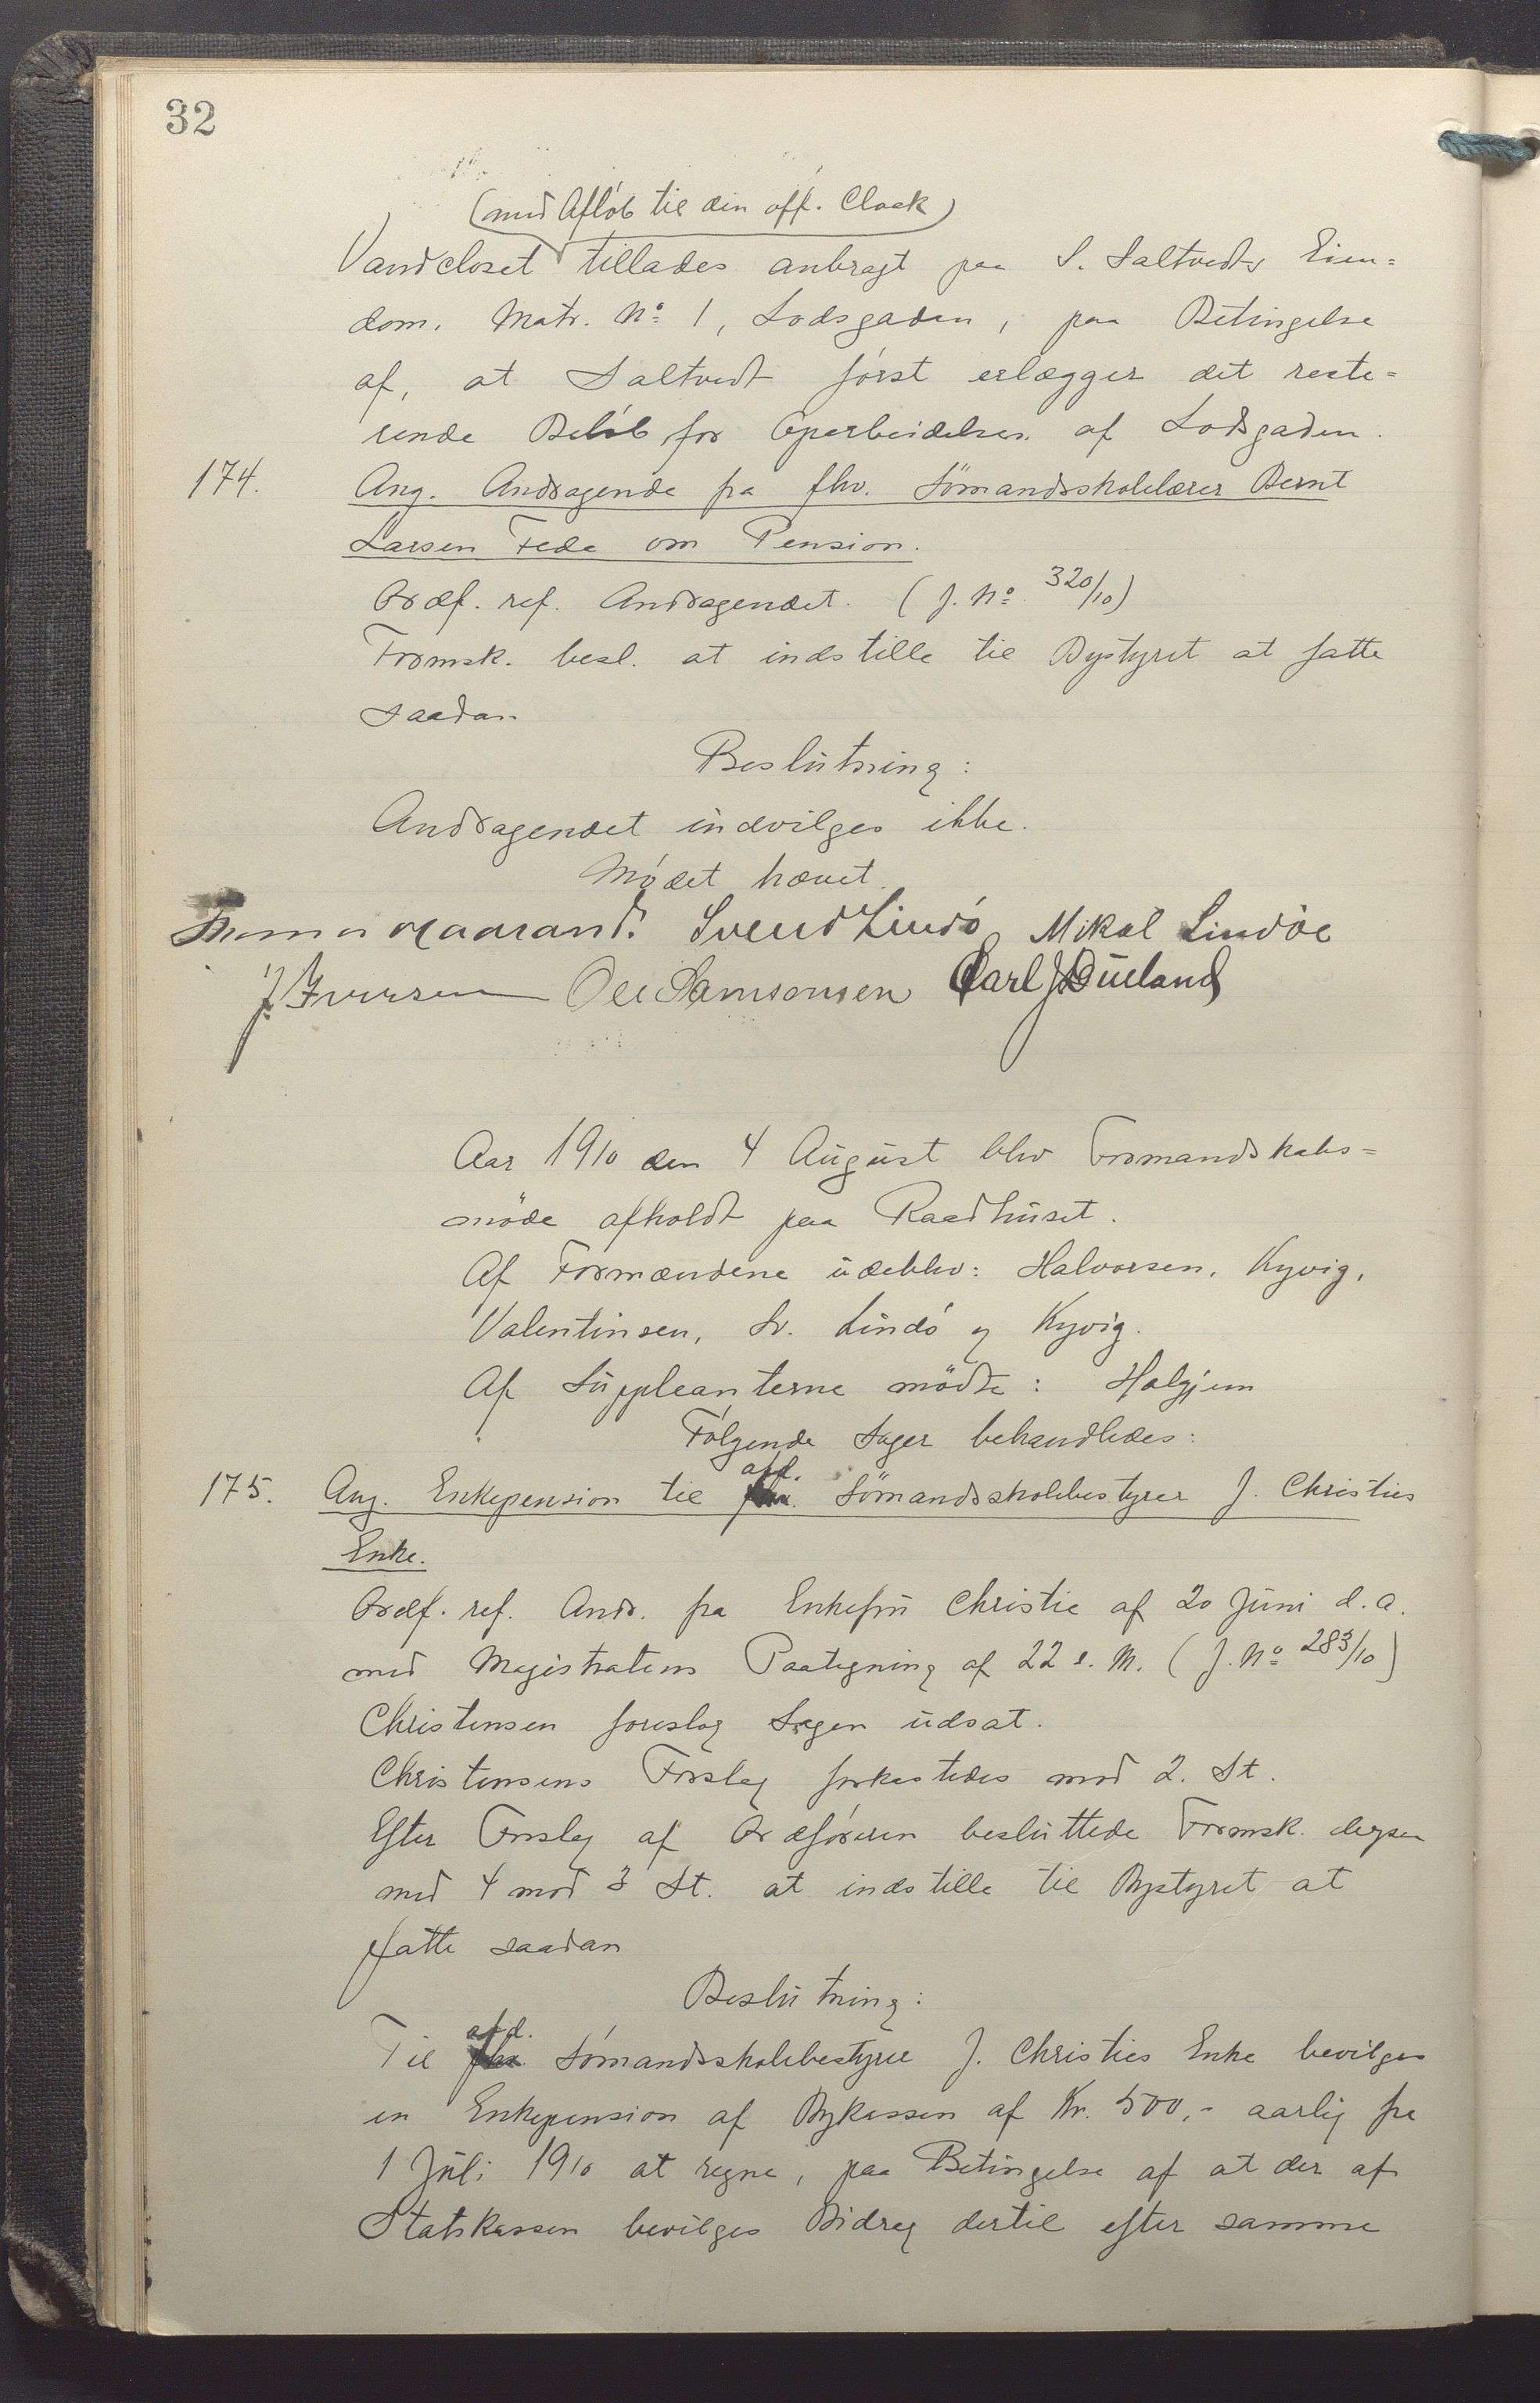 32
(med Afløb til den off. Cloak)
Vandcloset tillades anbragt paa S. Saltvedts Eien=
dom, Matr. No 1, Lodsgaden, paa Betingelse
af, at Saltvedt først erlægger det reste=
rende Beløb for Oparbeidelsen af Lodsgaden.
174. Ang. Andragende fra fhv. Sømandsskolelærer Bernt
Larsen Fede om Pension.
Ordf. ref. Andragendet. (J. No 320/10)
Formsk. besl. at indstille til Bystyret at fatte
saadan
Beslutning:
Andragendet indvilges ikke.
Mødet hævet.
Svend Lindø Mikal Lindøe
J. Iversen Ole Samsonsen Carl J. Dueland
Aar 1910 den 4 August blev Formandskabs=
møde afholdt paa Raadhuset.
Af Formændene udeblev: Halvorsen, Kyvig,
Valentinsen, Sv. Lindø og Kyvig.
Af Suppleanterne mødte: Halgjem
Følgende Sager behandledes:
175. Ang. Enkepension til afd. Sømandsskolebestyrer J. Christies
Enke.
Ordf. ref. Andr. fra Enkefru Christie af 20 Juni d. a.
med Magistratens Paategning af 22 s. M. (J. No 283/10)
Christensen foreslog Sagen udsat.
Christensens Forslag forkastedes mod 2. St.
Efter Forslag af Ordføreren besluttede Formsk. derpaa
med 4 mod 3 St. at indstille til Bystyret at
fatte saadan
Beslutning:
Til afd. Sømandsskolebestyrer J. Christies Enke bevilges
en Enkepension af Bykassen af Kr. 500,- aarlig fra
1 Juli 1910 at regne, paa Betingelse af at der af
Statskassen bevilges Bidrag dertil efter samme